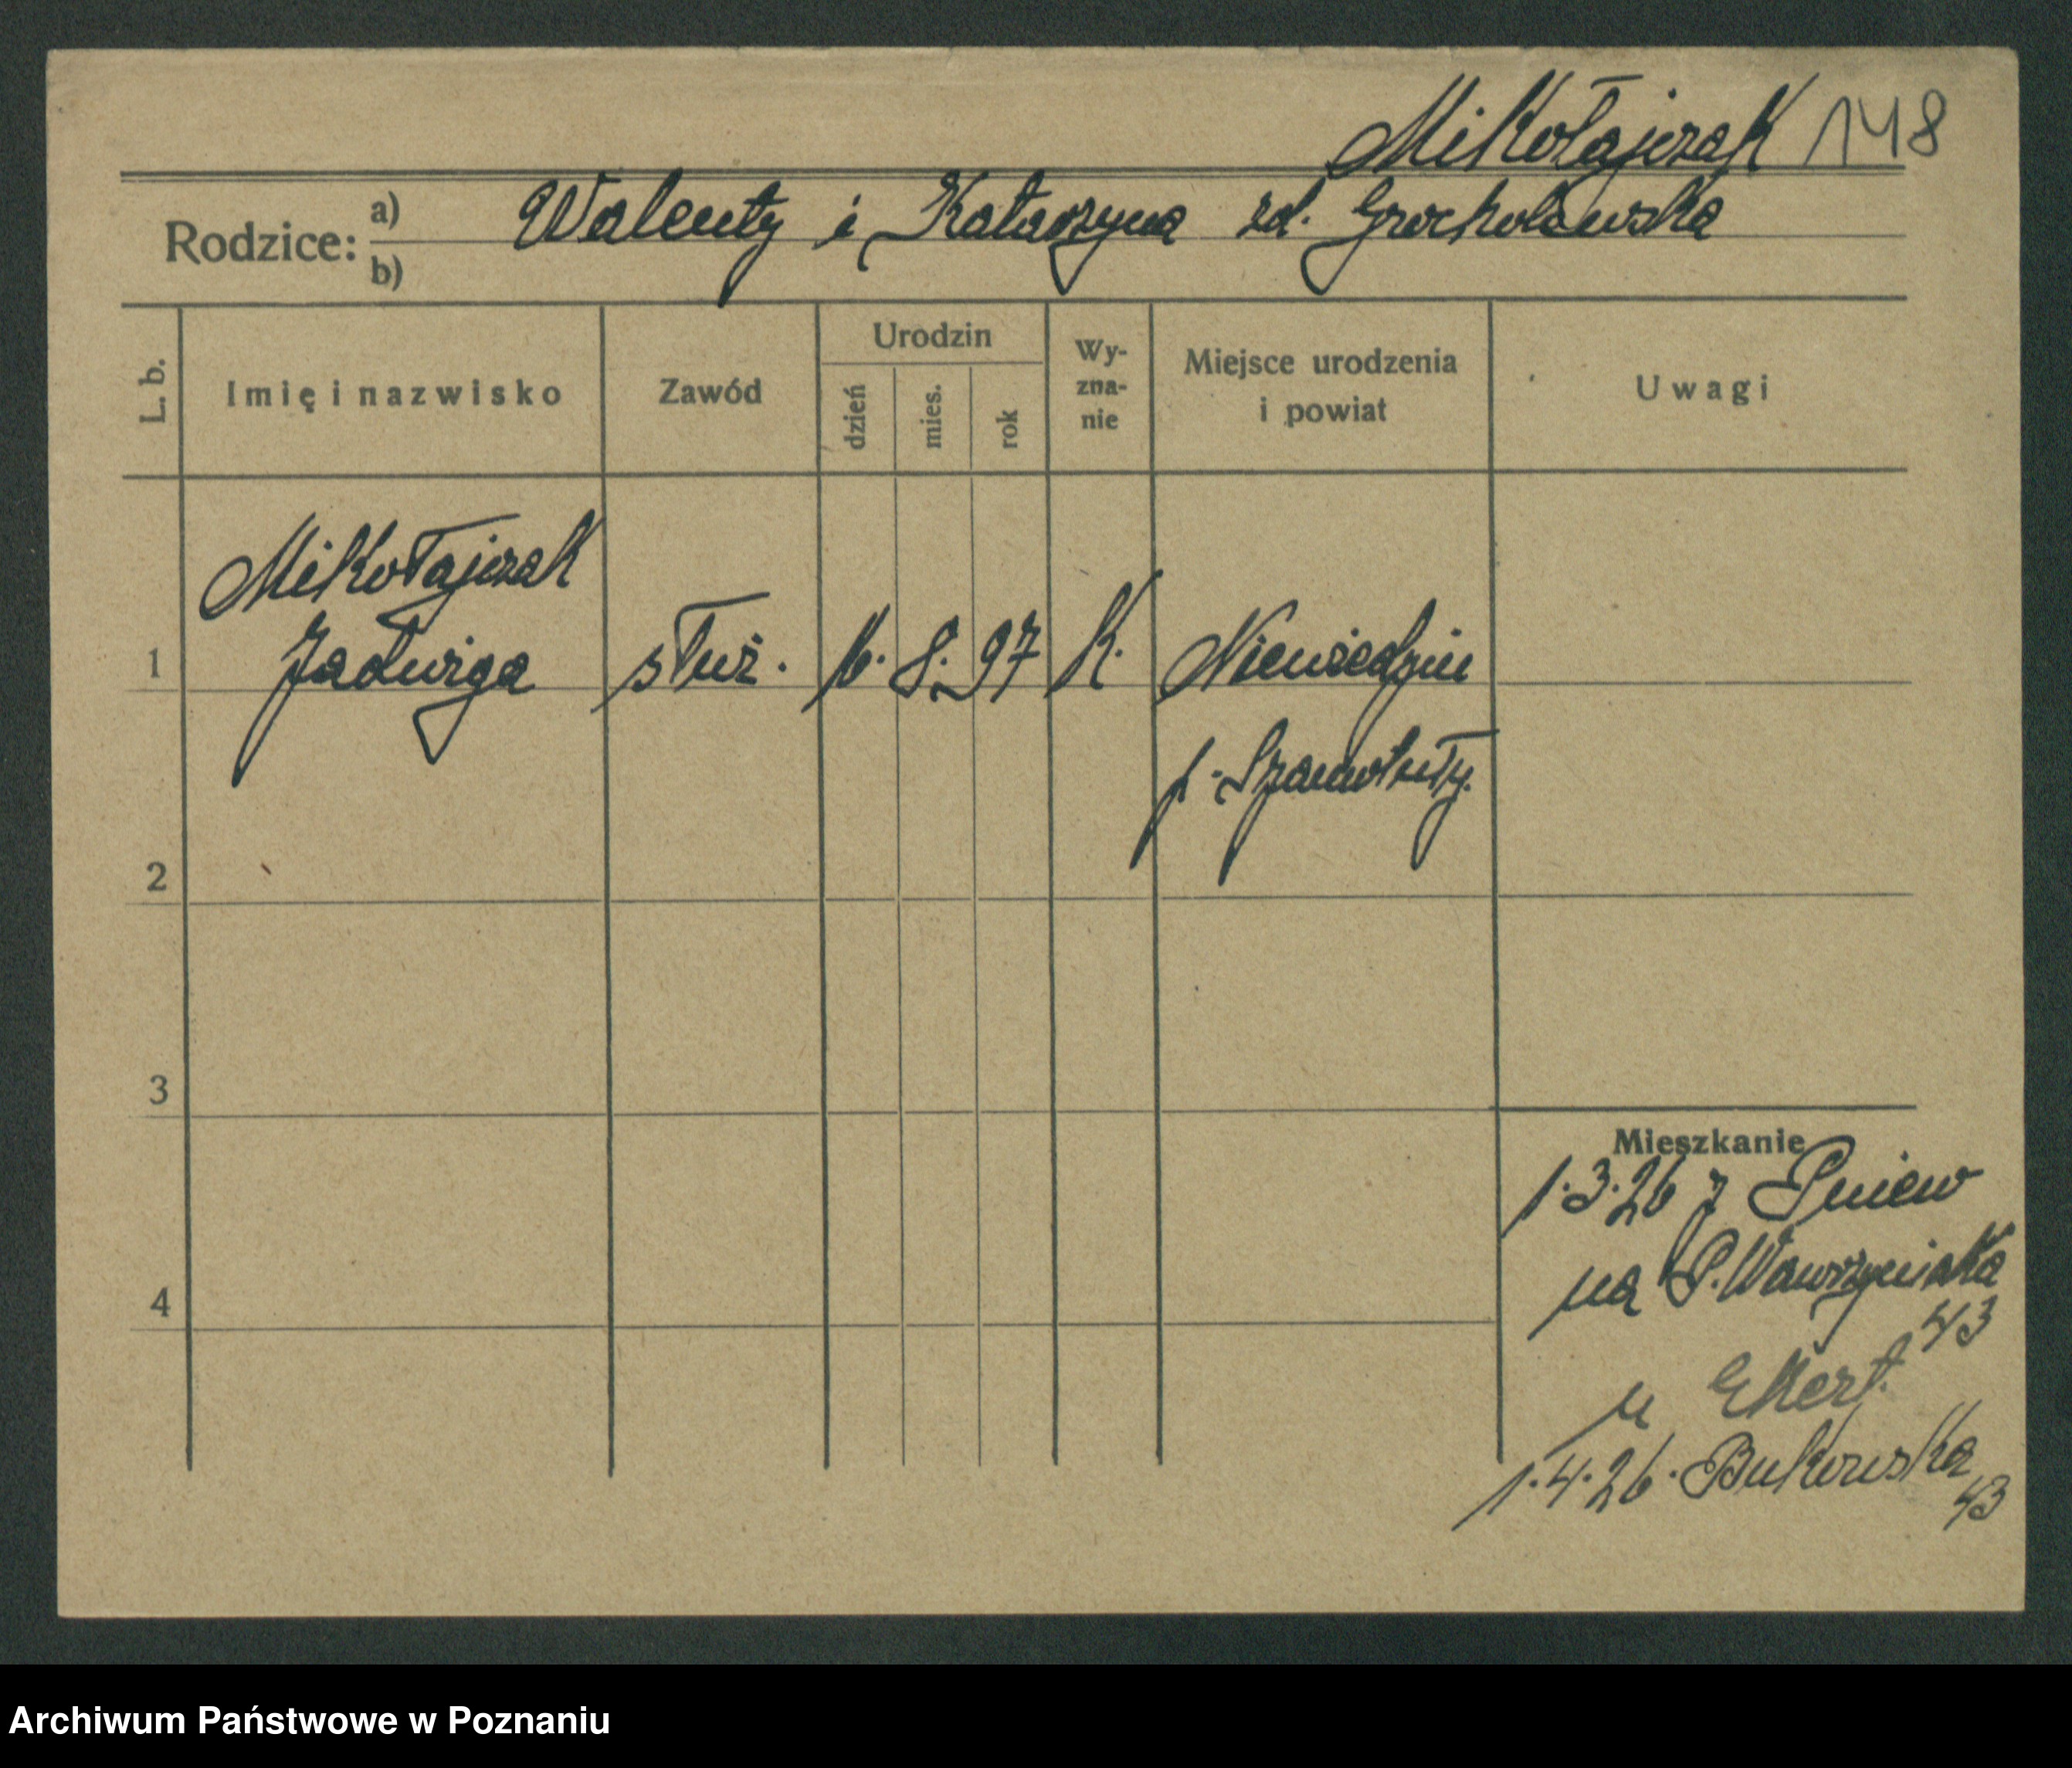 Mikołajczak 148
Rodzice: a) Walenty i Katarzyna zd. Grocholewska
b)
L. b. Imię i nazwisko Zawód Urodzin dzień mies. rok Wy-zna-nie Miejsce urodzenia i powiat Uwagi
Mikołajczak
1 Jadwiga służ. 16. 8. 97 K. Niewiedzin
p. Szamotuły.
2
3
Mieszkanie
1.3.26 z Pniew
na P. Wawrzyniaka
43
4
u Ekert.
1.4.26. Bukowska
43
Archiwum Państwowe w Poznaniu